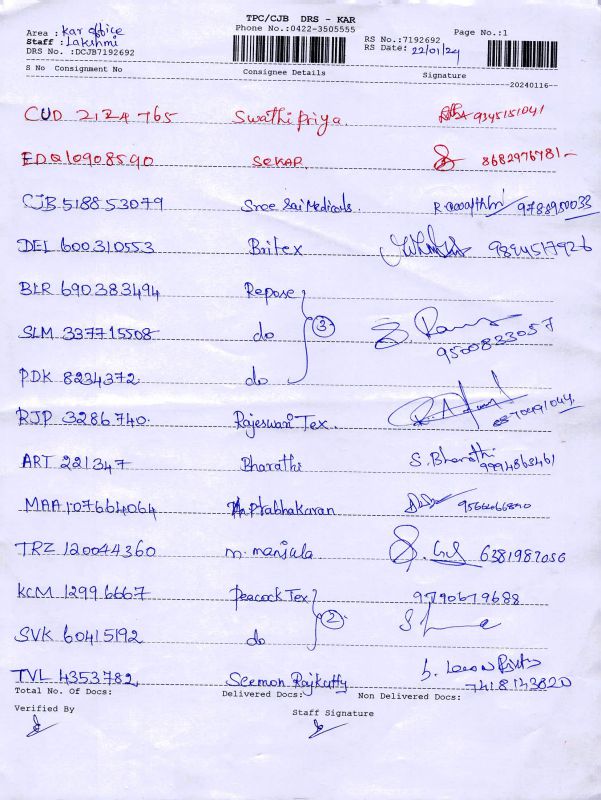 TPC/CJB DRS - KAR
Area : Kar office Phone No.:0422-3505555 RS No.:7192692 Page No.:1
Staff : Lakshmi RS Date: 22/01/24
DRS No. :DCJB7192692
S No Consignment No Consignee Details Signature
20240116
CUD 2124765 Swathi Priya 9345151041
EDQ10908590 SEKAR 8682976781
CJB 518853079 Sree Sai Medicals 9788950033
DEL 600310553 Britex 9894517926
BLR 690383494 Repose
SLM 337715508 do 3 9500823057
PDK 8234372 do
RJP 3286740 Rajeswari Tex.
ART 221347 Bharathi S. Bharathi 9994863461
MAA107664064 Prabhakaran
TRZ 120044360 m. manjula 6381987056
KCM 12996667 Peacock Tex 9790679688
SVK 60415192 do 2
TVL 4353782 Seemon Rajkutty 7418143820
Total No. Of Docs: Delivered Docs: Non Delivered Docs:
Verified By Staff Signature